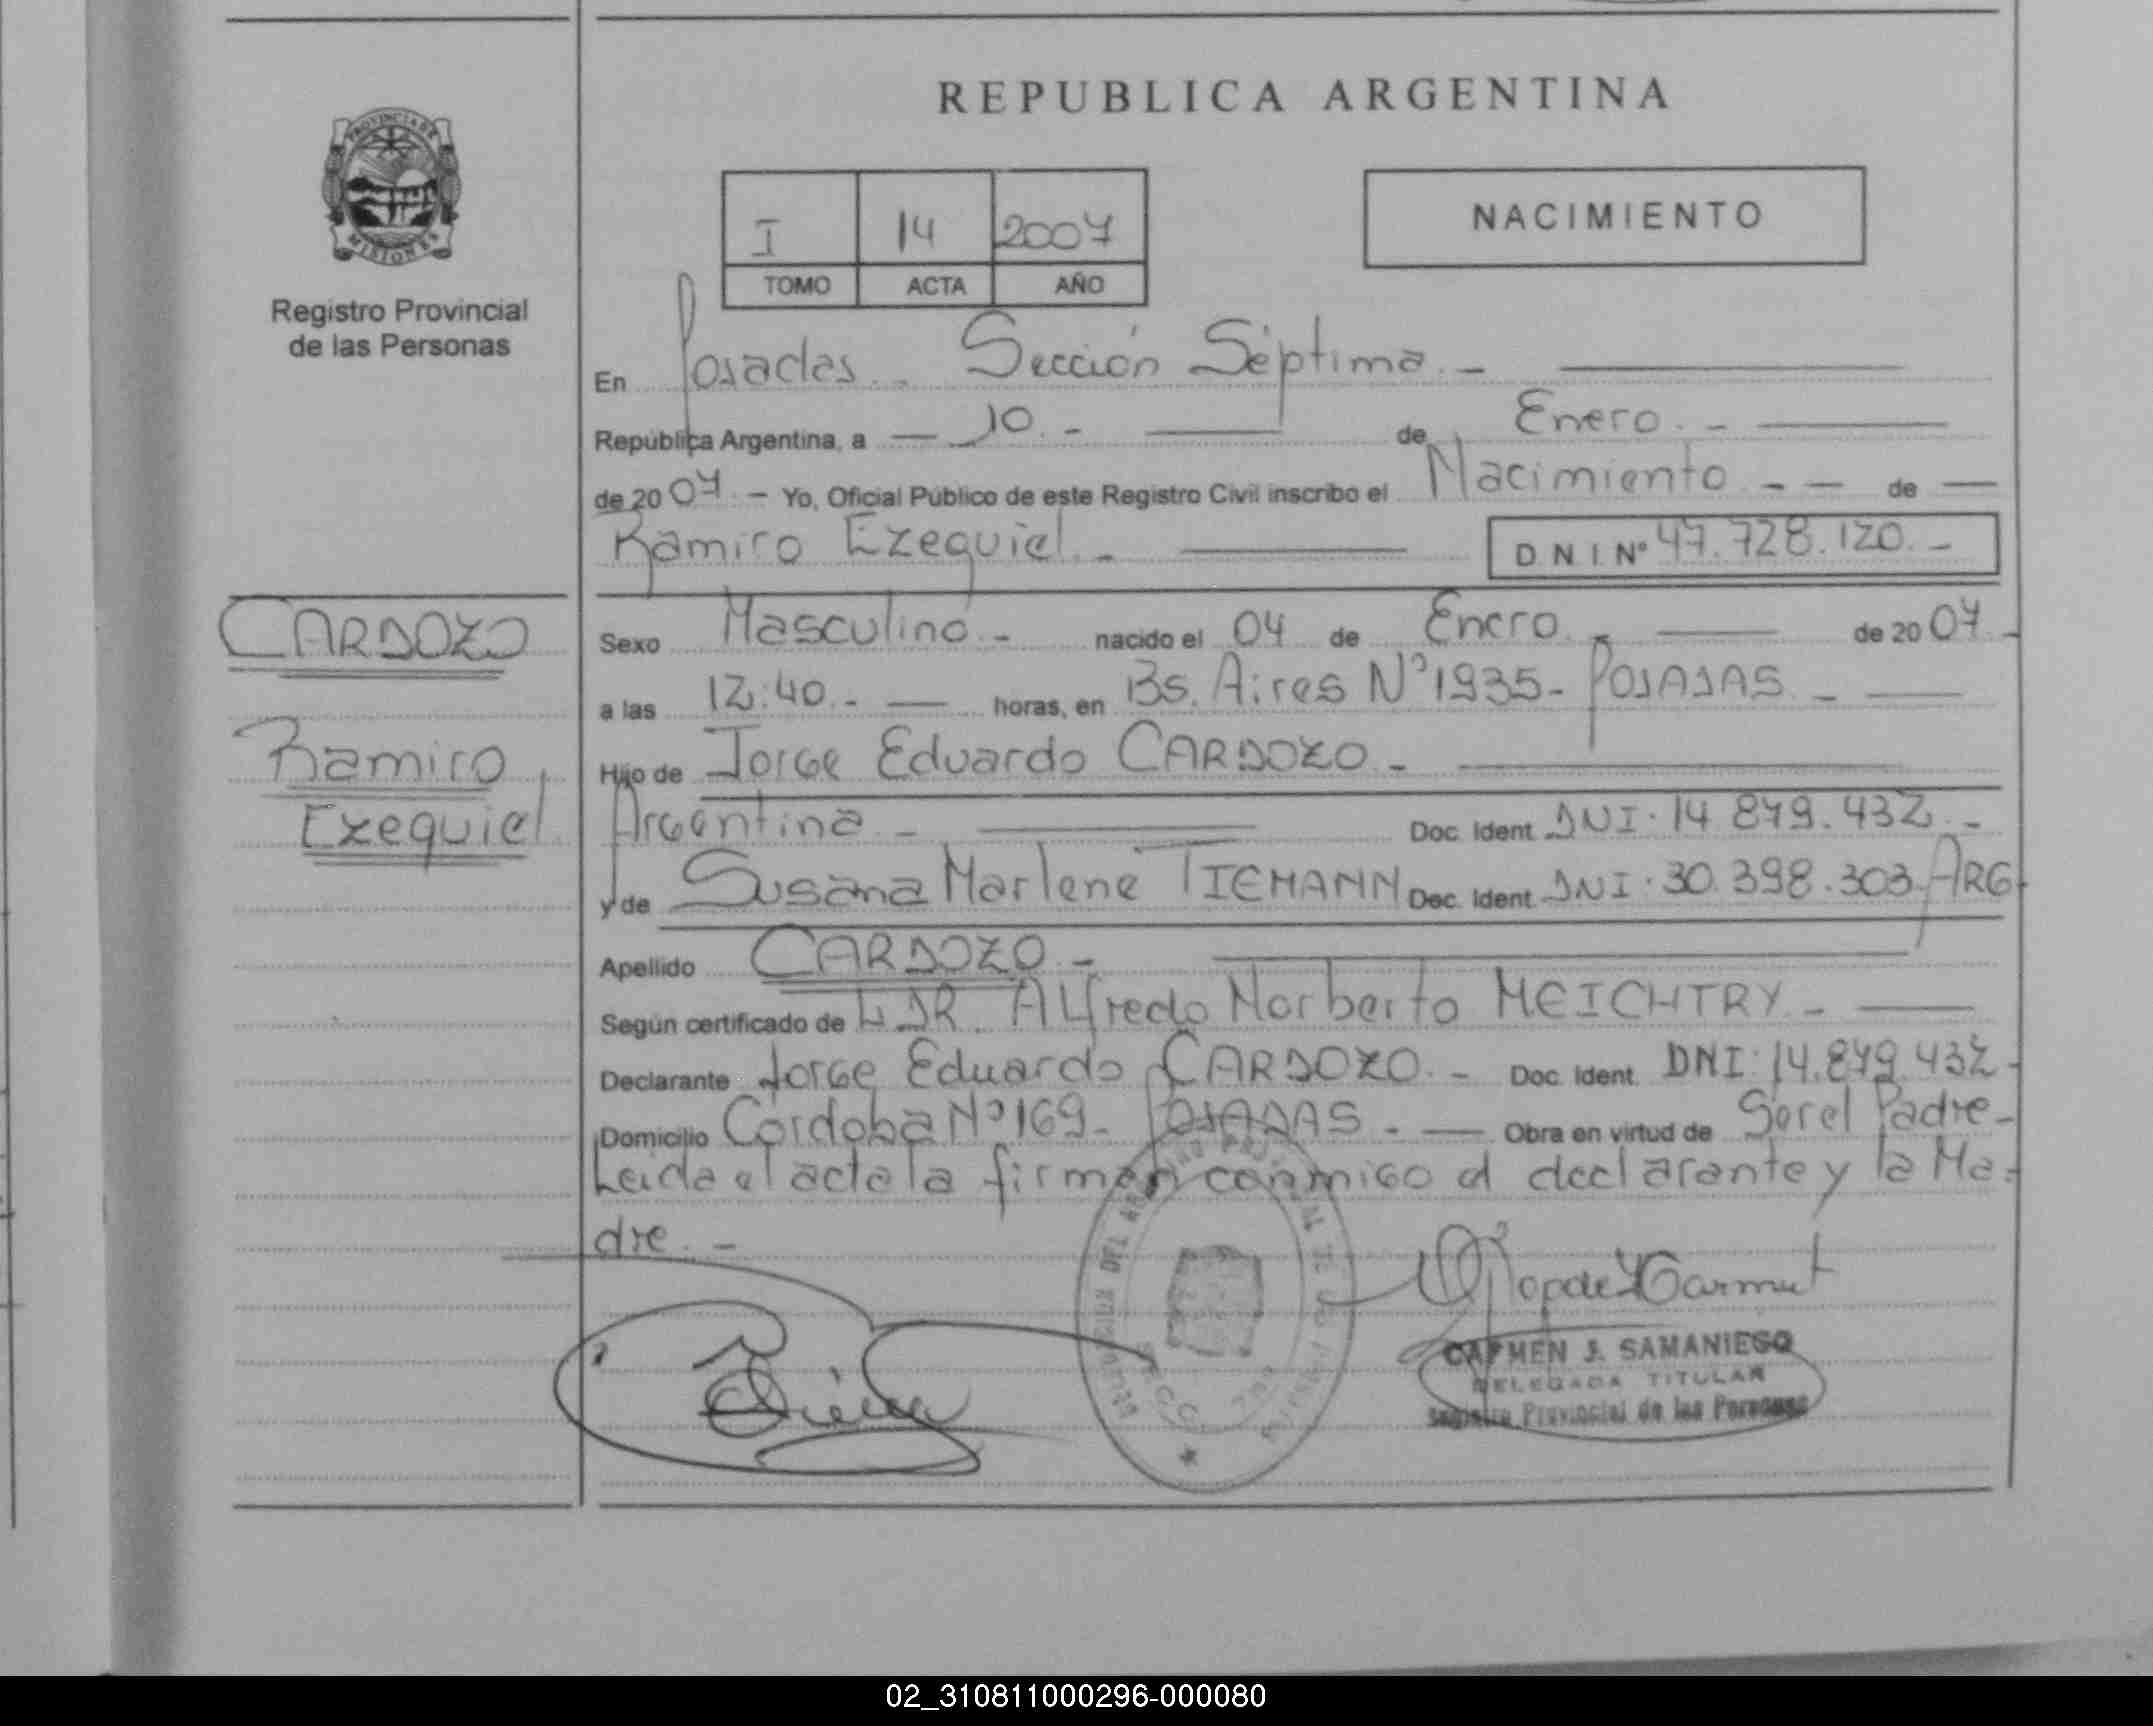 REPUBLICA ARGENTINA
PROVINCIA DE
MISIONES
Registro Provincial
de las Personas
I 14 2007
TOMO ACTA AÑO
NACIMIENTO
En Posadas. Sección Séptima. -
República Argentina, a - 10. - de Enero. -
de 2007. - Yo, Oficial Público de este Registro Civil inscribo el Nacimiento - - de -
Ramiro Ezequiel. - D.N.I. Nº 47.728.120. -
CARDOZO
Ramiro
Ezequiel
Sexo Masculino. - nacido el 04 de Enero. - de 2007. -
a las 12:40. - horas, en Bs. Aires Nº 1935 - POSADAS. -
Hijo de Jorge Eduardo CARDOZO. -
Argentina. - Doc. Ident. DNI. 14.879.432. -
y de Susana Marlene TIEMANN Doc. Ident. DNI. 30.398.303. ARG.
Apellido CARDOZO. -
Según certificado de DR. Alfredo Norberto MEICHTRY. -
Declarante Jorge Eduardo CARDOZO. - Doc. Ident. DNI: 14.879.432. -
Domicilio Córdoba Nº 169 - POSADAS. - Obra en virtud de Ser el Padre -
Leida el acta la firman conmigo el declarante y la Ma-
dre. -
CARMEN J. SAMANIEGO
DELEGADA TITULAR
Registro Provincial de las Personas
02_310811000296-000080